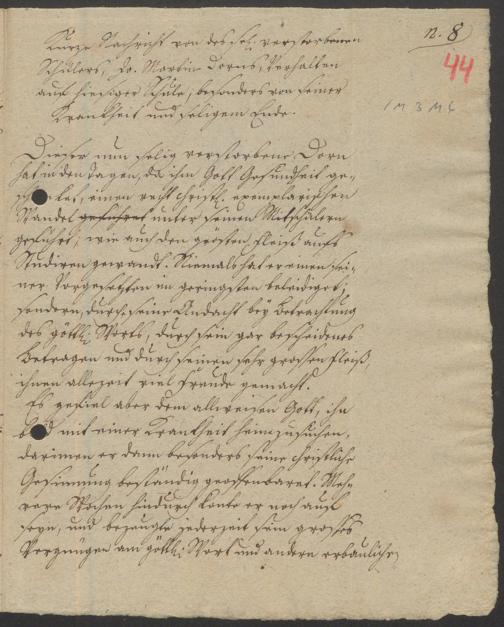 n. 8
44
1 M 3 M 6
Kurze Nachricht von des sel. verstorbenen
Schülers, Jo. Martin Dorns, Verhalten
auf hiesiger Schule, besonders von seiner
Krankheit und seligem Ende.
Dieser nun selig verstorbene Dorn
hat in den Tagen, da ihm Gott Gesundheit ge-
schenket, einen recht christl. exemplarischen
Wandel geführet unter seinen Mitschülern
geführt; wie auch den grösten Fleiß aufs
Studiren gewandt. Niemals hat er einen sei-
ner Vorgesetzten im geringsten beleidiget;
sondern, durch seine Andacht bey Betrachtung
des göttl. Worts, durch sein gar bescheidenes
Betragen und durch seinen sehr grossen Fleiß
ihnen allezeit viel Freude gemacht.
Es gefiel aber dem allweisen Gott, ihn
mit einer Krankheit heimzusuchen,
darinnen er dann besonders seine christliche
Gesinnung beständig geoffenbaret. Meh-
rere Wochen hindurch konte er noch auf
seyn, und bezeugte jederzeit sein grosses
Vergnügen am göttl. Wort und andern erbaulichen